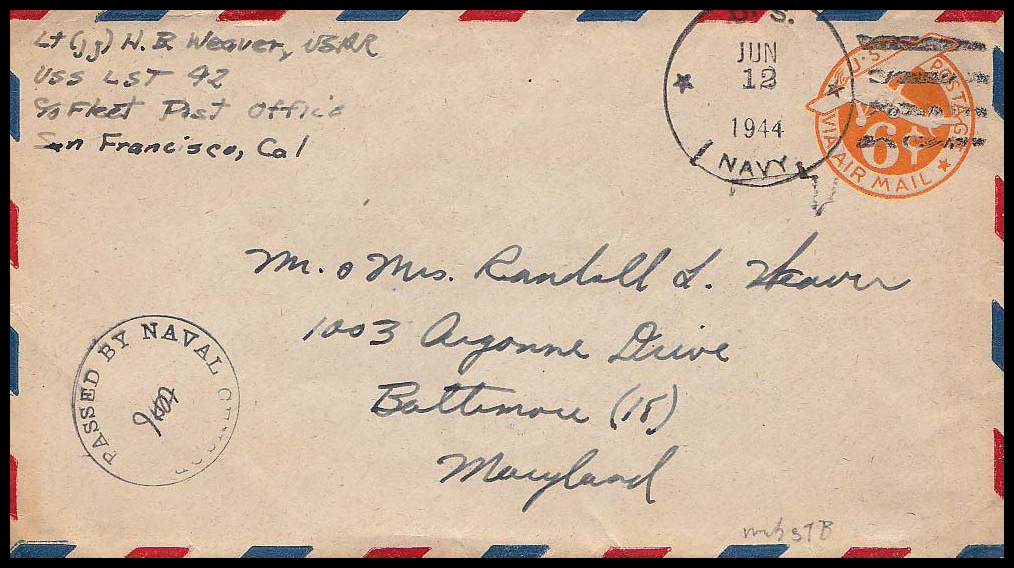 Lt (jg) H. B. Weaver, USNR
USS LST 42
c/o Fleet Post Office
San Francisco, Cal
U. S.
JUN
12
1944
NAVY
U.S. POSTAGE
6¢
VIA AIR MAIL
Mr. & Mrs. Randall L. Weaver
1003 Argonne Drive
Baltimore (18)
Maryland
PASSED BY NAVAL CENSOR